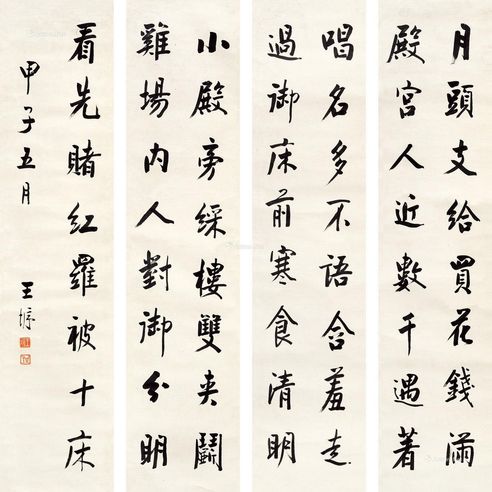 月頭支給買花錢滿
殿宮人近數千遇著
唱名多不語含羞走
過御床前寒食清明
小殿旁綵樓雙夾鬬
雞場內人對御分明
看先賭紅羅被十床
甲子五月
王